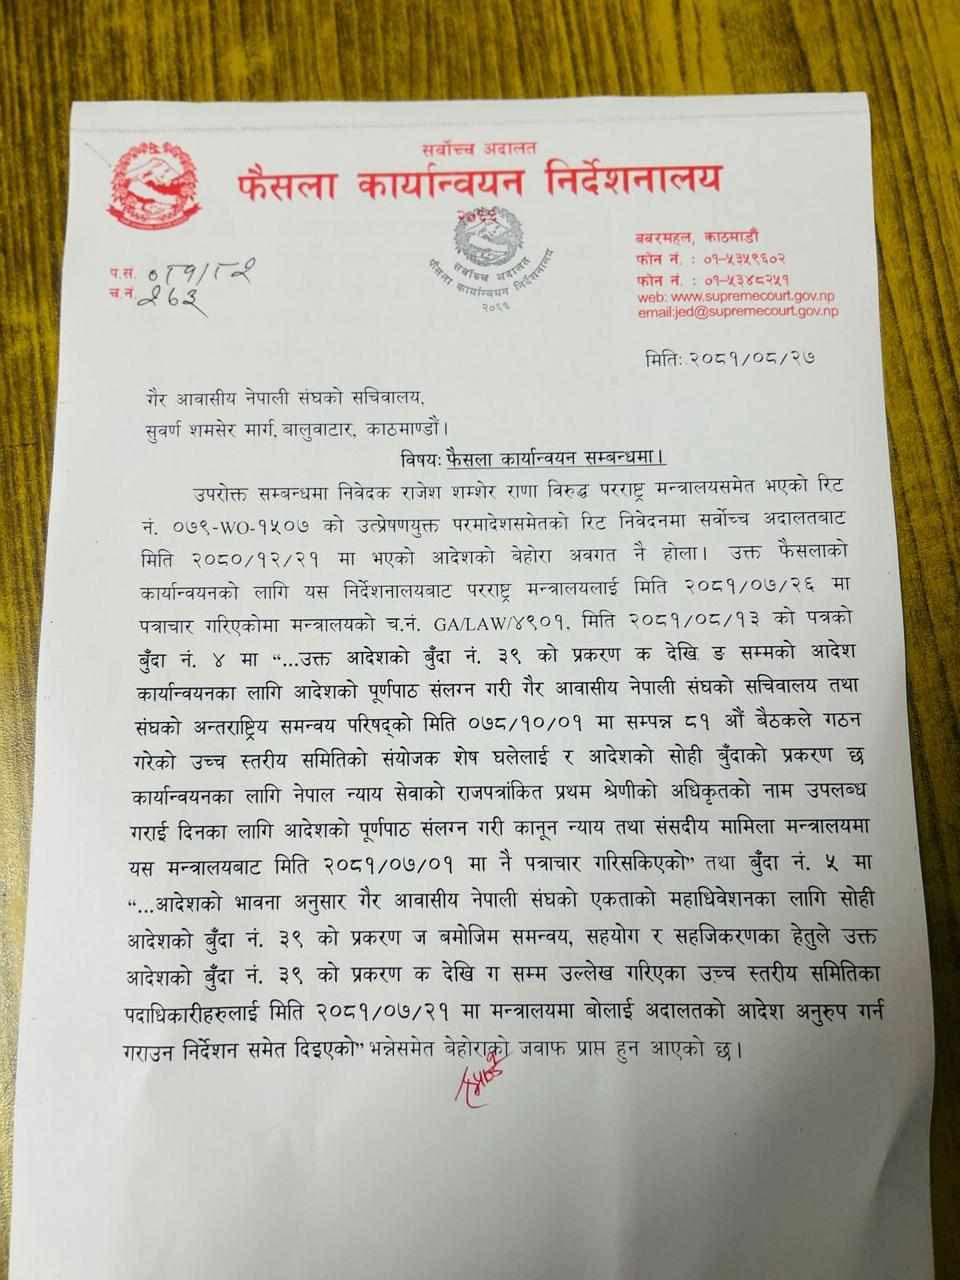 सर्वोच्च अदालत
फैसला कार्यान्वयन निर्देशनालय
२०६६
सर्वोच्च अदालत
फैसला कार्यान्वयन निर्देशनालय
२०६६
बबरमहल, काठमाडौं
फोन नं. : ०१-५३५९६०२
फोन नं. : ०१-५३४८२५१
web: www.supremecourt.gov.np
email:jed@supremecourt.gov.np
प.सं. ०८१/८२
च.नं. २६३
मितिः २०८१/०८/२७
गैर आवासीय नेपाली संघको सचिवालय,
सुवर्ण शमसेर मार्ग, बालुवाटार, काठमाण्डौं।
विषयः फैसला कार्यान्वयन सम्बन्धमा।
उपरोक्त सम्बन्धमा निवेदक राजेश शम्शेर राणा विरुद्ध परराष्ट्र मन्त्रालयसमेत भएको रिट
नं. ०७९-WO-१५०७ को उत्प्रेषणयुक्त परमादेशसमेतको रिट निवेदनमा सर्वोच्च अदालतबाट
मिति २०८०/१२/२१ मा भएको आदेशको बेहोरा अवगत नै होला। उक्त फैसलाको
कार्यान्वयनको लागि यस निर्देशनालयबाट परराष्ट्र मन्त्रालयलाई मिति २०८१/०७/२६ मा
पत्राचार गरिएकोमा मन्त्रालयको च.नं. GA/LAW/४९०१, मिति २०८१/०८/१३ को पत्रको
बुँदा नं. ४ मा “...उक्त आदेशको बुँदा नं. ३९ को प्रकरण क देखि ङ सम्मको आदेश
कार्यान्वयनका लागि आदेशको पूर्णपाठ संलग्न गरी गैर आवासीय नेपाली संघको सचिवालय तथा
संघको अन्तराष्ट्रिय समन्वय परिषद्को मिति ०७८/१०/०१ मा सम्पन्न ८१ औं बैठकले गठन
गरेको उच्च स्तरीय समितिको संयोजक शेष घलेलाई र आदेशको सोही बुँदाको प्रकरण छ
कार्यान्वयनका लागि नेपाल न्याय सेवाको राजपत्रांकित प्रथम श्रेणीको अधिकृतको नाम उपलब्ध
गराई दिनका लागि आदेशको पूर्णपाठ संलग्न गरी कानून न्याय तथा संसदीय मामिला मन्त्रालयमा
यस मन्त्रालयबाट मिति २०८१/०७/०१ मा नै पत्राचार गरिसकिएको” तथा बुँदा नं. ५ मा
“...आदेशको भावना अनुसार गैर आवासीय नेपाली संघको एकताको महाधिवेशनका लागि सोही
आदेशको बुँदा नं. ३९ को प्रकरण ज बमोजिम समन्वय, सहयोग र सहजिकरणका हेतुले उक्त
आदेशको बुँदा नं. ३९ को प्रकरण क देखि ग सम्म उल्लेख गरिएका उच्च स्तरीय समितिका
पदाधिकारीहरुलाई मिति २०८१/०७/२१ मा मन्त्रालयमा बोलाई अदालतको आदेश अनुरुप गर्न
गराउन निर्देशन समेत दिइएको” भन्नेसमेत बेहोराको जवाफ प्राप्त हुन आएको छ।